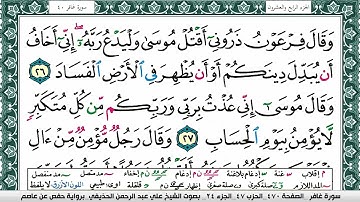 جزء الرابع والعشرون
سورة غافر ٤٠
وَقَالَ فِرْعَوْنُ ذَرُونِىٓ أَقْتُلْ مُوسَىٰ وَلْيَدْعُ رَبَّهُۥٓ ۖ إِنِّىٓ أَخَافُ
أَن يُبَدِّلَ دِينَكُمْ أَوْ أَن يُظْهِرَ فِى ٱلْأَرْضِ ٱلْفَسَادَ ٢٦
وَقَالَ مُوسَىٰٓ إِنِّى عُذْتُ بِرَبِّى وَرَبِّكُم مِّن كُلِّ مُتَكَبِّرٍ
لَّا يُؤْمِنُ بِيَوْمِ ٱلْحِسَابِ ٢٧ وَقَالَ رَجُلٌ مُّؤْمِنٌ مِّنْ ءَالِ
سورة غافر الصفحة ٤٧٠ الحزب ٤٧ الجزء ٢٤ بصوت الشيخ علي عبد الرحمن الحذيفي برواية حفص عن عاصم